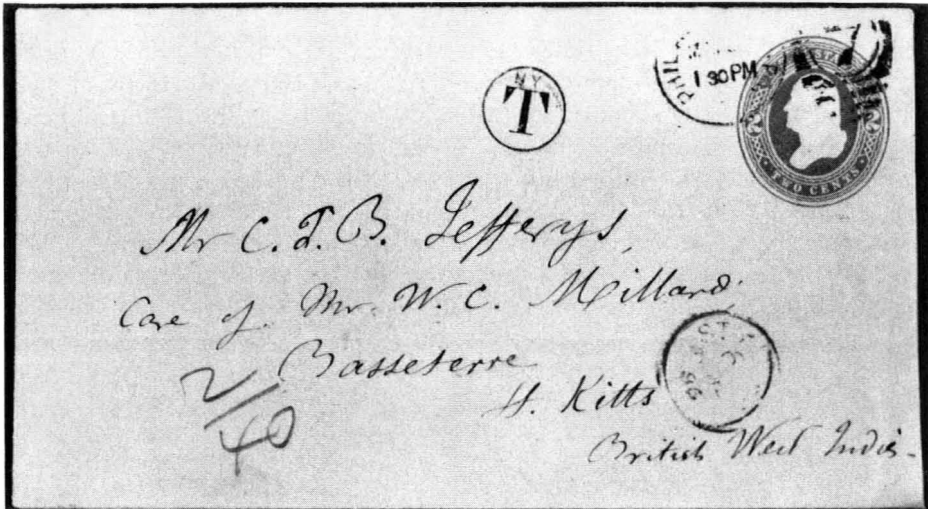 PHIL
1 30 PM
NY
T
TWO CENTS
Mr C. T. B. Jefferys,
Care of Mr. W. C. Millard.
Basseterre
St. Kitts
British West Indies.
2/40